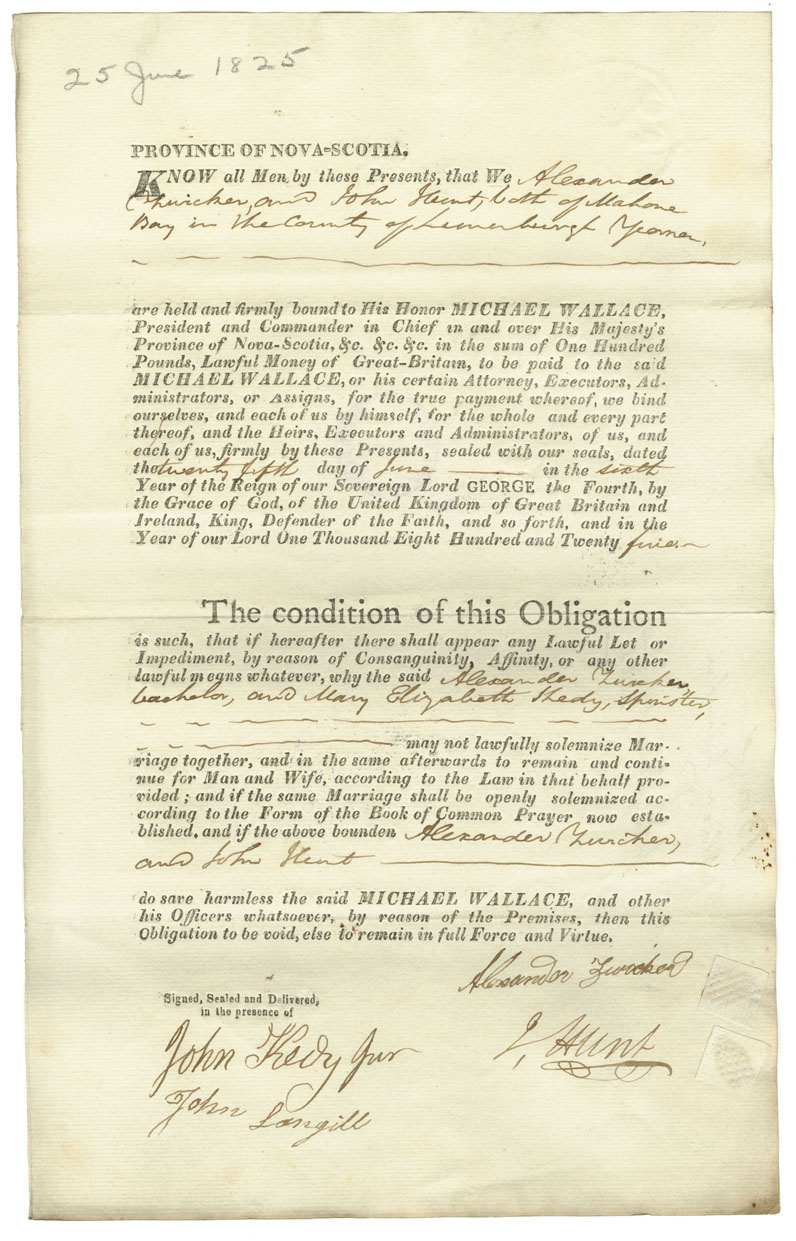 25 June 1825
PROVINCE OF NOVA-SCOTIA.
KNOW all Men by these Presents, that We Alexander
Zwicker, and John Hunt, both of Mahone
Bay in the County of Lunenburgh Yeomen,
are held and firmly bound to His Honor MICHAEL WALLACE,
President and Commander in Chief in and over His Majesty's
Province of Nova-Scotia, &c. &c. &c. in the sum of One Hundred
Pounds, Lawful Money of Great-Britain, to be paid to the said
MICHAEL WALLACE, or his certain Attorney, Executors, Ad-
ministrators, or Assigns, for the true payment whereof, we bind
ourselves, and each of us by himself, for the whole and every part
thereof, and the Heirs, Executors and Administrators, of us, and
each of us, firmly by these Presents, sealed with our seals, dated
the twenty fifth day of June in the sixth
Year of the Reign of our Sovereign Lord GEORGE the Fourth, by
the Grace of God, of the United Kingdom of Great Britain and
Ireland, King, Defender of the Faith, and so forth, and in the
Year of our Lord One Thousand Eight Hundred and Twenty five
The condition of this Obligation
is such, that if hereafter there shall appear any Lawful Let or
Impediment, by reason of Consanguinity, Affinity, or any other
lawful means whatever, why the said Alexander Zwicker,
bachelor, and Mary Elizabeth Kedy, Spinster,
may not lawfully solemnize Mar-
riage together, and in the same afterwards to remain and conti-
nue for Man and Wife, according to the Law in that behalf pro-
vided ; and if the same Marriage shall be openly solemnized ac-
cording to the Form of the Book of Common Prayer now esta-
blished, and if the above bounden Alexander Zwicker,
and John Hunt
do save harmless the said MICHAEL WALLACE, and other
his Officers whatsoever, by reason of the Premises, then this
Obligation to be void, else to remain in full Force and Virtue.
Alexander Zwicker
Signed, Sealed and Delivered,
in the presence of
John Kedy Jur
J, Hunt
John Langill